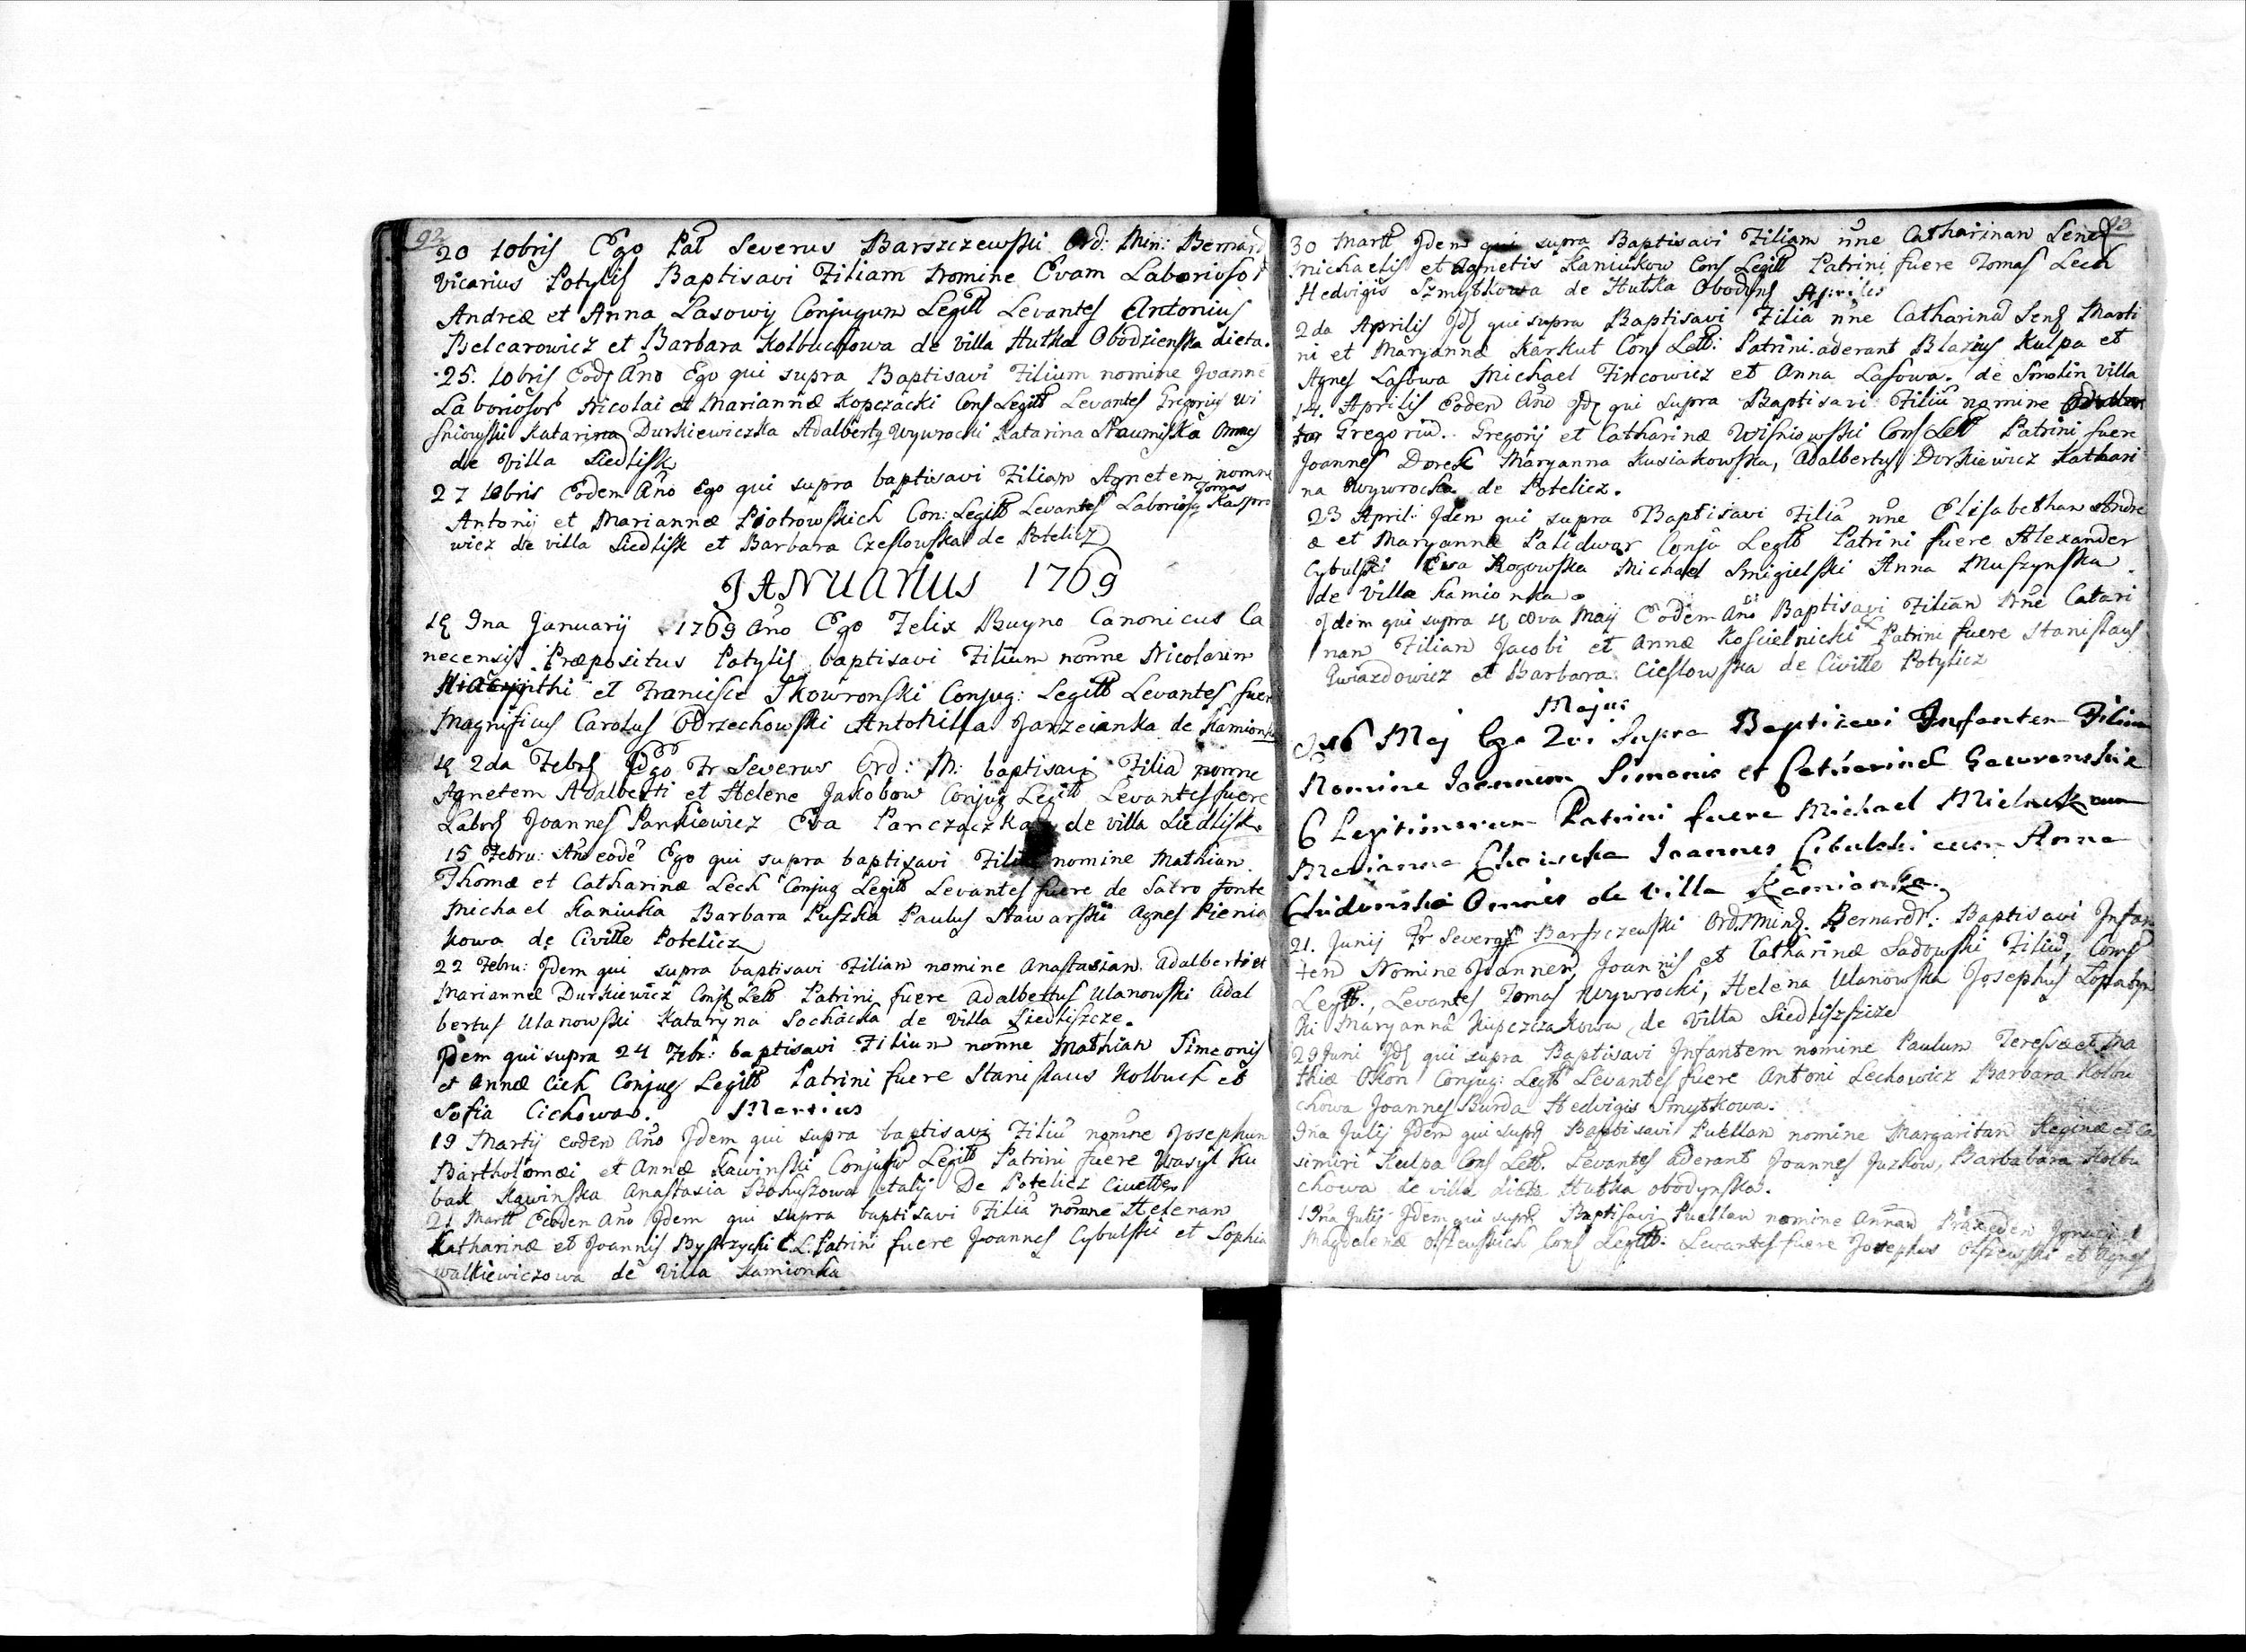 92
20 10bris Ego Pat Severus Barszczewski Ord: Min: Bernard
Vicarius Potylis Baptisavi Filiam Nomine Evam Laborioso
Andreæ et Anna Lasowij Conjugum Legitt Levantes Antonius
Belcarowicz et Barbara Kolbuchowa de villa Hutka Obodzienska dicta.
25. 10bris Eod Año Ego qui supra Baptisavi Filium nomine Joanne
Laboriosor Nicolai et Mariannæ Kopczacki Cons Legitt Levantes Grigorius Wi
sniowski Katarina Durkiewiczka Adalbertq Wywrocki Katarina Naumiska Omnes
de Villa Siedlisk
27 10bris Eodem Año Ego qui supra baptisavi Filiam Agnetem nomne
Antonij et Mariannæ Piotrowskich Con: Legitt Levantes Laboriosq Tomas Kaspro
wicz de villa Siedlisk et Barbara Czeslowska de Potelicz
JANUARIUS 1769
9na Januarij 1769 Año Ego Felix Buyno Canonicus Ca
necensis Præpositus Potylis baptisavi Filium nonne Nicolaum
Hiacynthi et Francisce Skowronski Conjug: Legitt Levantes fuer
Magnificus Carolus Orzechowski Antonilla Janzeianka de Kamionka
2da Febrs Ego Fr Severus Ord: M: baptisavi Filiā nonne
Agnetem Adalberti et Helene Jakobow Conjug Legitt Levantes fuere
Labors Joannes Pankiewicz Eva Panczaczka de villa Siedlisk.
15 Febru: Año eode Ego qui supra baptisavi Filiū nomine Mathian
Thomæ et Catharinæ Lech Conjug Legitt Levantes fuere de Satro fonte
Michael Kaniuka Barbara Puszka Paulus Nawarski Agnes Pienia
kowa de Civitte Potelicz
22 Febru: Jdem qui supra baptisavi Filian nomine Anastasian Adalberti et
Mariannæ Durkiewicz Conjs Lett Patrini fuere Adalbertus Ulanowski Adal
bertus Ulanowski Kataryna Sochacka de villa Siedliszcze.
Jdem qui supra 24 Febr: baptisavi Filium nonne Mathian Simeonis
et Annæ Cich Conjug Legitt Patrini fuere Stanislaus Kolbuch et
Sofia Cichowa. Martius
19 Martij eoden Año Jdem qui supra baptisavi Filiū nomine Josephum
Bartholomæi et Annæ Kawinski Conjugū Legitt Patrini fuere Wasyl Ku
bak Kawinska Anastasia Bohuszowa De Potelicz Civitte
21 Martt Eoden Año Jdem qui supra baptisavi Filiā nomne Helenan
Katharinæ et Joannis Bystrzycki C.L. Patrini fuere Joannes Cybulski et Sophia
Walkiewiczowa de Villa Kamionka
93
30 Martt Jdem qui supra Baptisavi Filiam nne Catharinan
Michaelis et Agnetis Kaniukow Cons Legitt Patrini fuere Tomas Lech
Hedvigis Szmytkowa de Hutka Obodyns Aprilis
2da Aprilis Jds qui supra Baptisavi Filiā nne Catharinā Marti
ni et Maryannæ Karkut Cons Lett: Patrini aderant Blazius Kulpa et
Agnes Lasowa Michael Fincowicz et Anna Lasowa. de Smolin Villa
14. Aprilis Eoden Año Jds qui supra Baptisavi Filiū nomine
Gregoriū. Gregorij et Catharinæ Wisniowski Cons Lett Patrini fuere
Joannes Dorek Maryanna Kusiakowska, Adalbertus Durkiewicz Kathari
na Wywrocka de Potelicz.
23 April: Jdem qui supra Baptisavi Filiā nne Elisabethan Andre
æ et Maryannæ Palidwar Conju Legtt Patrini fuere Alexander
Cybulski Ewa Rogowska Michael Smigielski Anna Muszynska
de Villa Kamionka
Jdem qui supra 8va Maij Eodem Año Baptisavi Filian Nne Catari
nan Filian Jacobi et Annæ Koscielnicki Patrini fuere Stanislaus
Gwiazdowicz et Barbara Cieslowska de Civitte Potylicz
Majus
16 Maj Ego Qui Supra Baptizavi Infantem Filium
Nomine Joannem Simonis et Catharinæ Gawronskie
C Legitimorum Patrini fuere Michael Mielnik cum
Marianna Joannes Cibulski cum Anna
Omnes de villa Kamionka.
21. Junij Fr Severq Barszczewski Ord: Min: Bernardi: Baptisavi Jnfan
ten Nomine Joannen Joannis et Catharinæ Sadowski Filiū, Cons
Legtt., Levantes Tomas Wywrocki, Helena Ulanowska Josephus Lopatyn
ki Maryanna Kupczczakowa de Villa Siedliszszcze
29 Juni Jds qui supra Baptisavi Jnfantem nomine Paulum Teressæ et Ma
thiæ Okon Conjug: Legtt Levantes fuere Antoni Lechowicz Barbara Kolbu
chowa Joannes Burda Hedvigis Smytkowa.
9na Julij Jdem qui supra Baptisavi Puellan nomine Margaritan Reginæ et Ca
simiri Kulpa Cons Lett. Levantes aderant Joannes Juzkow, Barbabara Kolbu
chowa de villa dicta Hutka obodynska.
19na Julij Jdem qui supra Baptisavi Puellan nomine Annan Praxeden Jgnacij et
Magdelenæ Olszewskich Cons Legitt: Levantes fuere Josephus Olszewski et Agnes